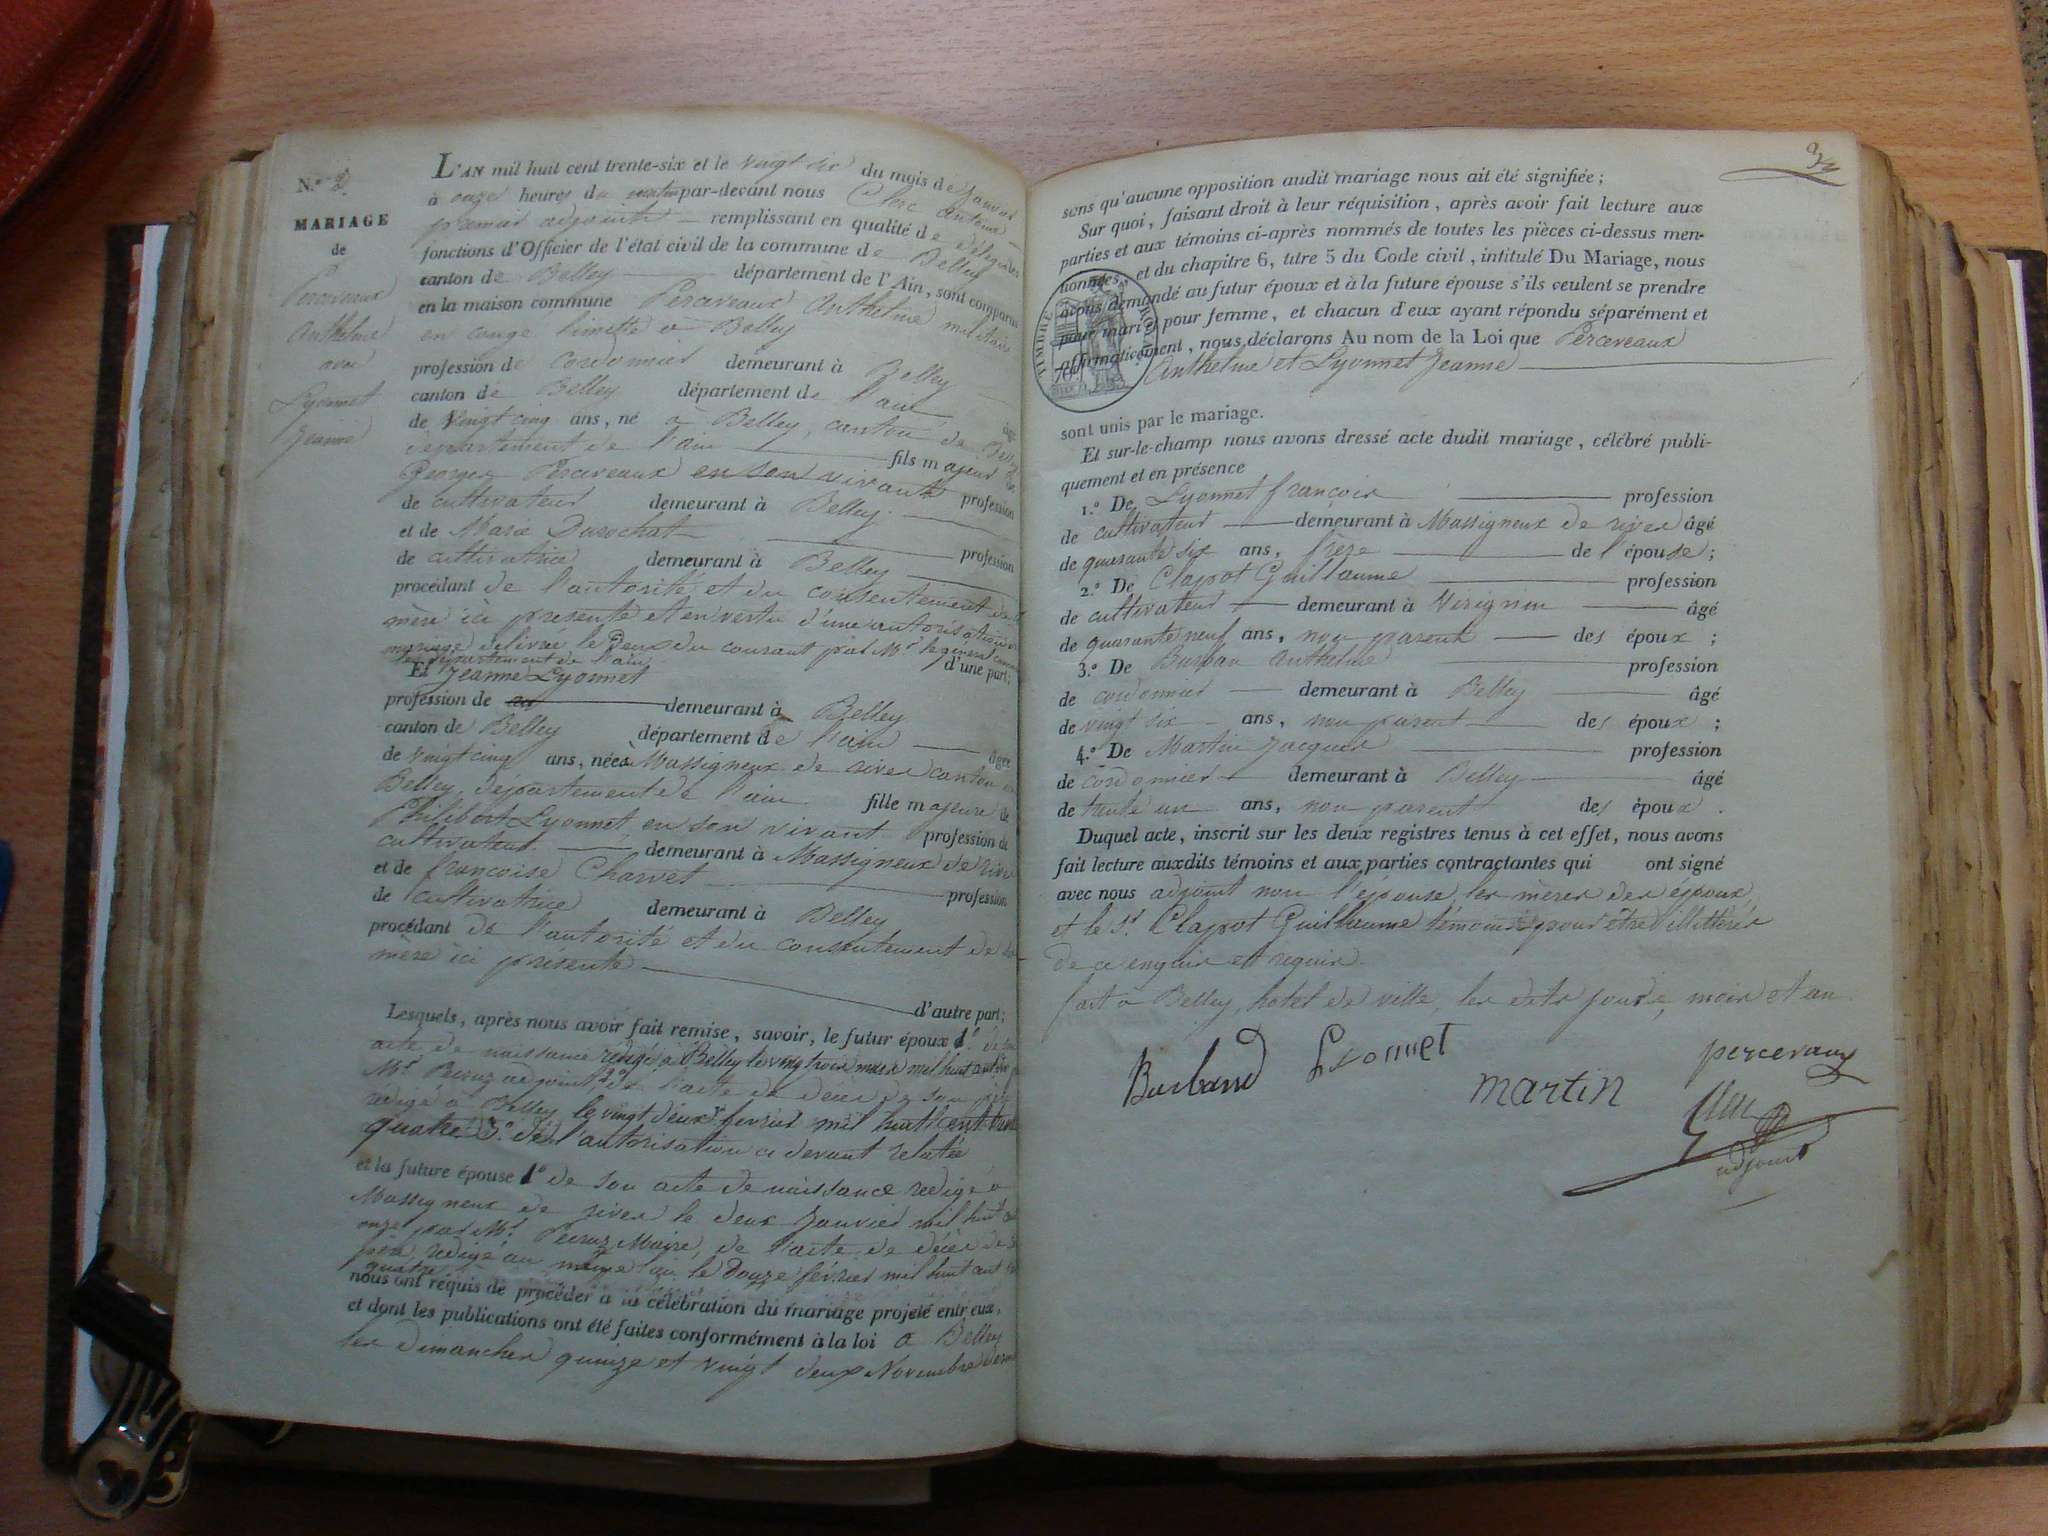 N.º 3.
MARIAGE
de
Perceveaux
Anthelme
avec
Lyonnet
Jeanne
L'AN mil huit cent trente-six et le vingt six du mois de Janvier
à onze heures du matin par-devant nous Clerc Antoine
premier adjoint remplissant en qualité de délégué les
fonctions d'Officier de l'état civil de la commune de Belley
canton de Belley département de l'Ain, sont comparus
en la maison commune Perceveaux Anthelme militaire
en congé limitté à Belley
profession de cordonnier demeurant à Belley
canton de Belley département de l'ain âgé
de vingt cinq ans, né à Belley, canton de Belley
département de l'ain fils majeur de
Georges Perceveaux en son vivant profession
de cultivateur demeurant à Belley.
et de Marie Durochat profession
de cultivatrice demeurant à Belley
procédant de l'autorité et du consentement de sa
mère ici presente et en vertu d'une autorisation de
mariage délivrée le deux du courant par Mr le général
le département de l'ain d'une part;
Et Jeanne Lyonnet
profession de demeurant à Belley
canton de Belley département de l'ain âgée
de vingt cinq ans, née à Massigneux de rives canton de
Belley, département de l'ain fille majeure de
Philibert Lyonnet, en son vivant profession de
cultivateur. demeurant à Massigneux de rives
et de françoise Charvet profession
de cultivatrice demeurant à Belley
procédant de l'autorité et du consentement de sa
mère ici presente
d'autre part;
Lesquels, après nous avoir fait remise, savoir, le futur époux 1º de son
acte de naissance redigé à Belley le vingt trois mars mil huit cent dix
Mr. adjoint 2º de l'acte de décès de son père
rédigé à Belley le vingt deux fevrier mil huit cent trente
quatre 3º de l'autorisation ci devant relatée
et la future épouse 1º de son acte de naissance redigé à
Massigneux de rives le deux Janvier mil huit cent
onze par Mr. Maire, de l'acte de décès de son
père redigé au même lieu le douze février mil huit cent
quatre
nous ont requis de procéder à la célébration du mariage projeté entr'eux,
et dont les publications ont été faites conformément à la loi à Belley
les dimanches quinze et vingt deux Novembre dernier
3
sans qu'aucune opposition audit mariage nous ait été signifiée;
Sur quoi, faisant droit à leur réquisition, après avoir fait lecture aux
parties et aux témoins ci-après nommés de toutes les pièces ci-dessus men-
tionnées, et du chapitre 6, titre 5 du Code civil, intitulé Du Mariage, nous
avons demandé au futur époux et à la future épouse s'ils veulent se prendre
pour mari et pour femme, et chacun d'eux ayant répondu séparément et
affirmativement, nous déclarons Au nom de la Loi que Perceveaux
Anthelme et Lyonnet Jeanne
TIMBRE ROYAL
sont unis par le mariage.
Et sur-le-champ nous avons dressé acte dudit mariage, célébré publi-
quement et en présence
1.º De Lyonnet françois profession
de cultivateur demeurant à Massigneux de rives âgé
de quarante six ans, frère de l'épouse;
2.º De Clapot Guillaume profession
de cultivateur demeurant à Virignin âgé
de quarante neuf ans, non parent des époux;
3.º De Burban Anthelme profession
de cordonnier demeurant à Belley âgé
de vingt six ans, non parent des époux;
4.º De Martin Jacques profession
de cordonnier demeurant à Belley âgé
de trente un ans, non parent des époux.
Duquel acte, inscrit sur les deux registres tenus à cet effet, nous avons
fait lecture auxdits témoins et aux parties contractantes qui ont signé
avec nous adjoint non l'épouse, les mères des époux
et le Sr. Clapot Guillaume témoins pour être illittérés
de ce enquis et requis.
fait à Belley, hotel de ville, les dits jour, mois et an
Burband Lyonnet
martin
percevaux
Clerc
adjoint